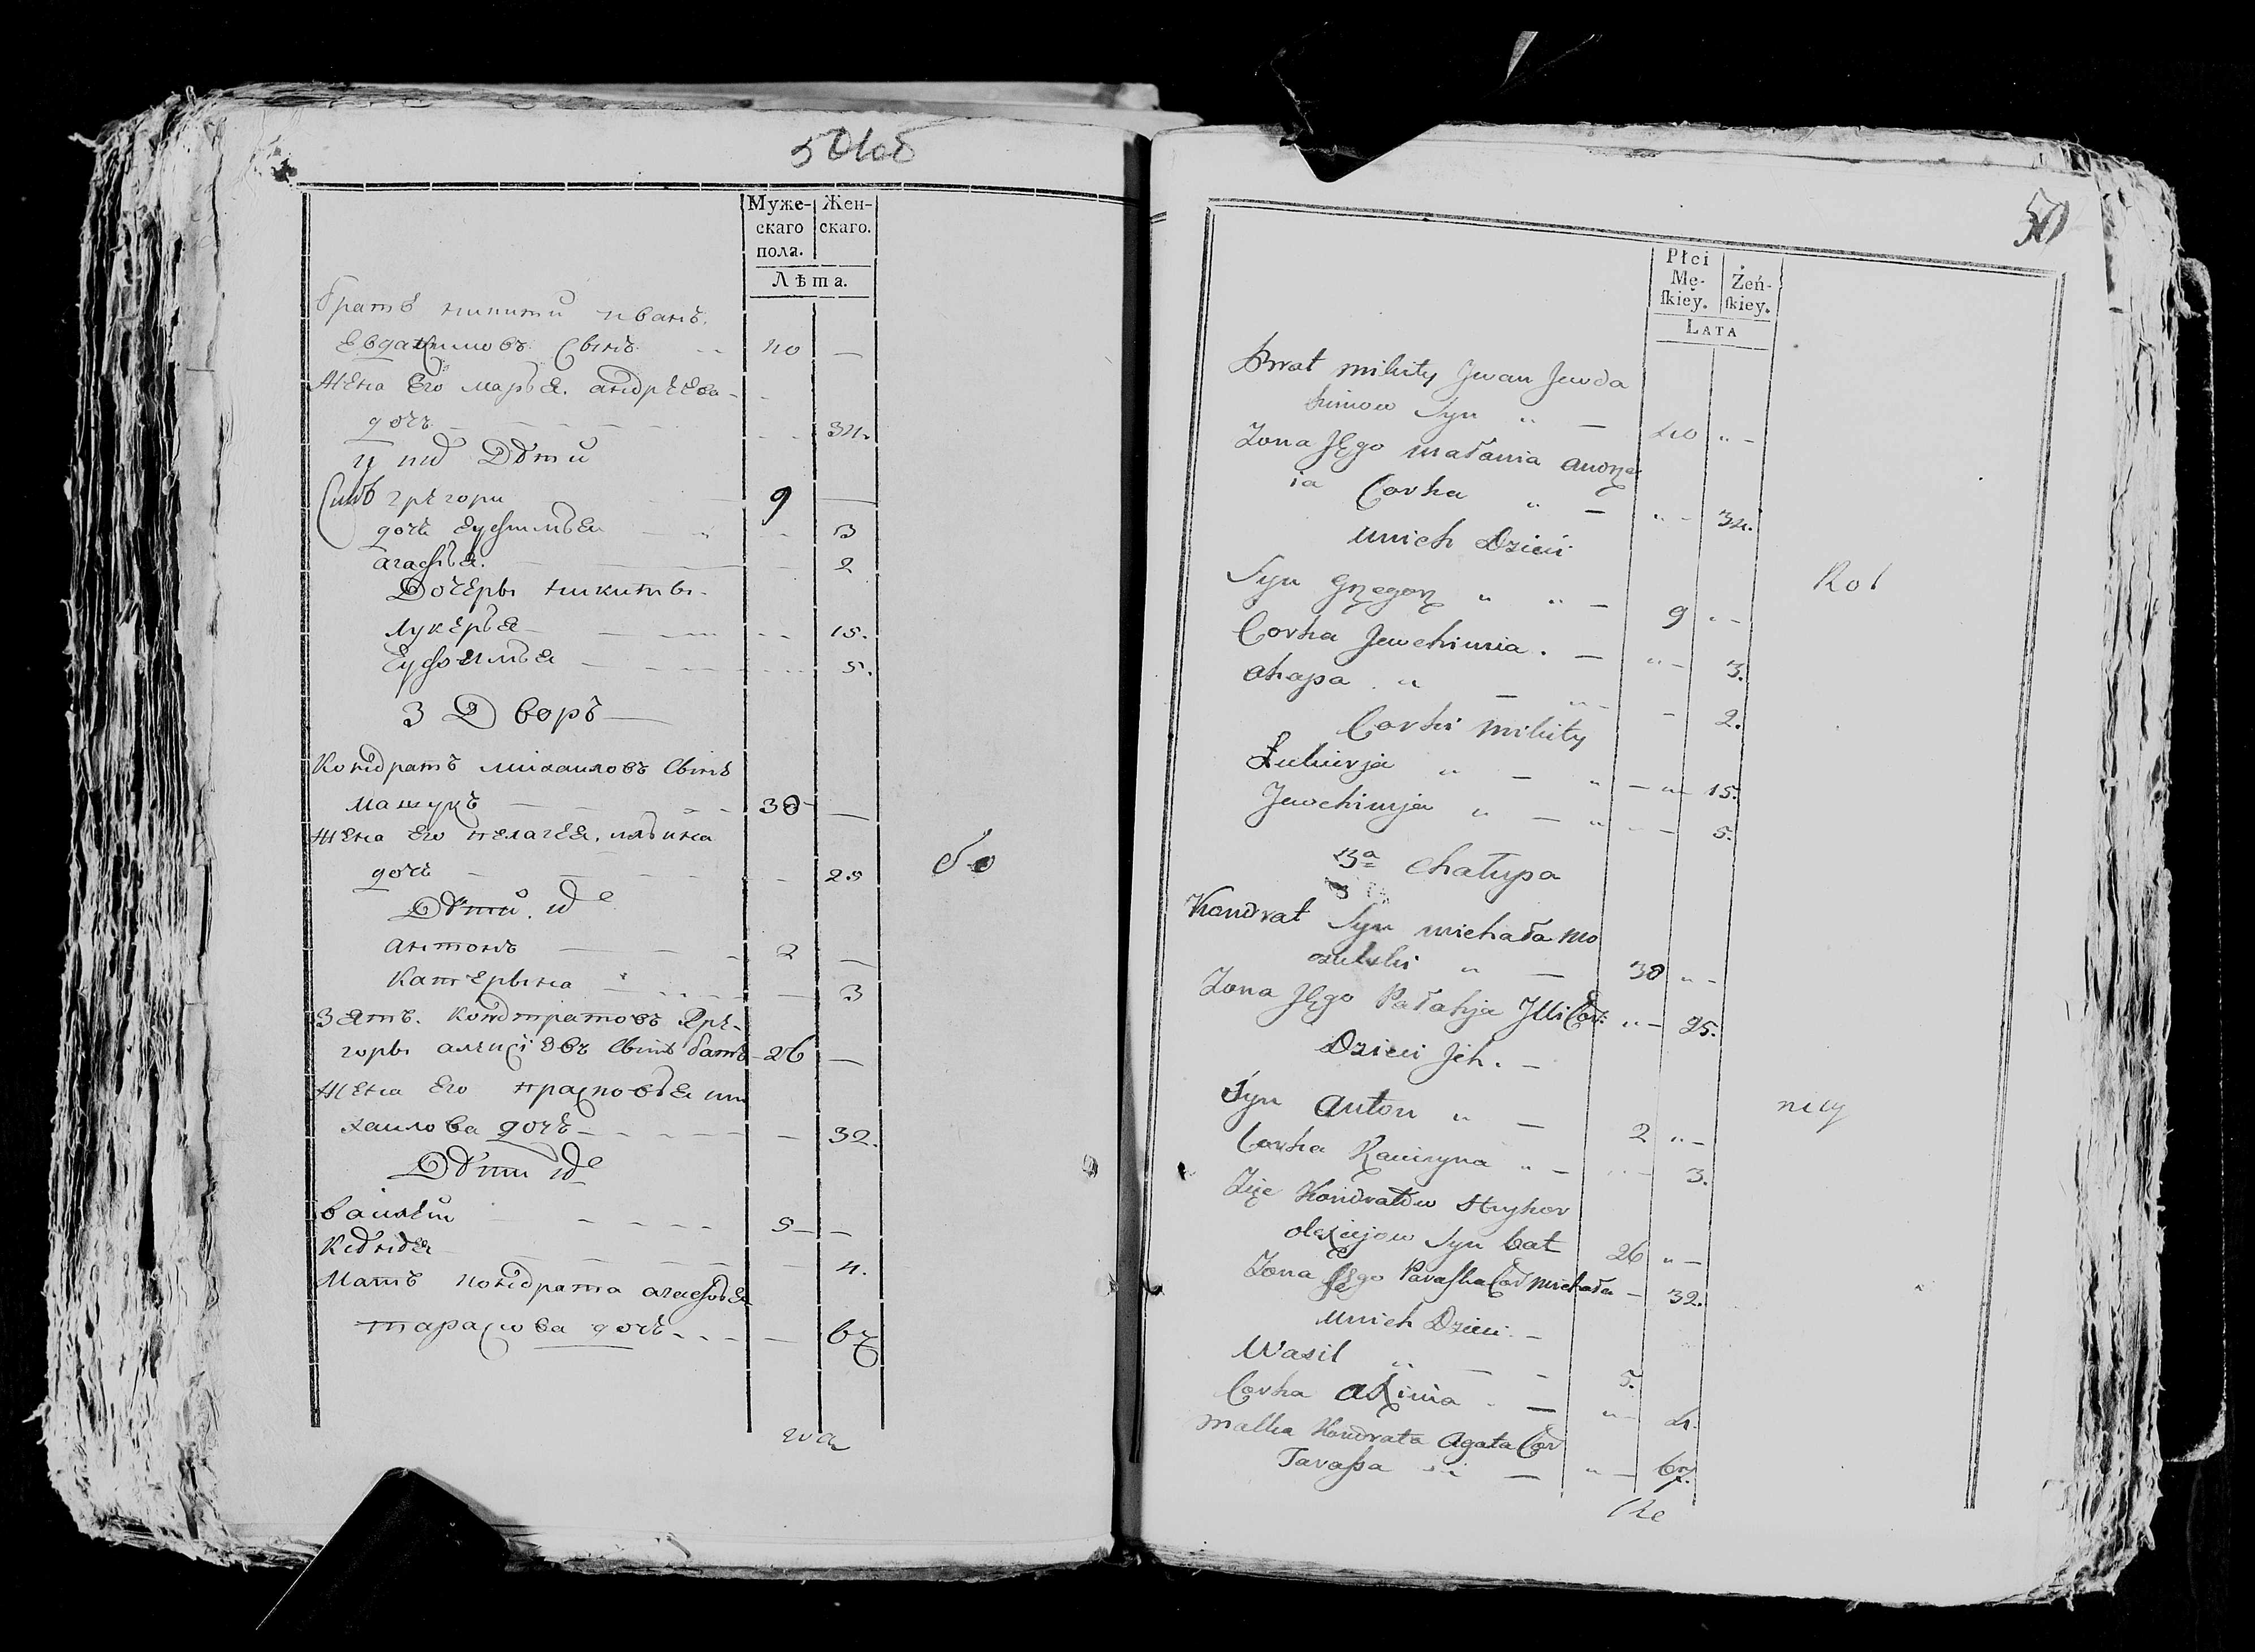 Муже-
скаго
пола.
Жен-
скаго.
Лѣта.
братъ никиты иванъ
Евдакимовъ Сынъ 40 —
Жена Его марья андрѣева
дочъ 34.
у них Дѣти
Сынъ грѣгори 9 —
дочъ Еуфимья 3
агафья. 2
Дочеры никиты
Лукерья 15.
Еуфимья 5.
3 Дворъ
Кондратъ михаиловъ Сынъ
30 —
Жена Его пелагея. ильина
дочъ 25
Дѣти их
антонъ 2 —
Катерына 3
Зять. Кондратовъ Грѣ-
горы Сынъ батъ 26 —
Жена Его прасковья ми
хаилова дочъ 32.
Дѣти их
василѣй 5 —
4.
Мать кондрата агафья
тарасова дочъ 67
Płci
Mę-
ſkiey.
Żeń-
ſkiey.
LATA
Brat mikity Jwan Jewda
kimow Syn " — 40 " —
Zona Jego małania andrze
ia Corka " — " — 34.
unich Dzieci
Syn Grzegorz " " — 9 " —
Corka Jewchimia . — " — 3.
ahapa " — " — — 2.
Corki mikity
Łukierja " — " — " — 15.
Jewchimja " — " — 5.
3a Chałupa
Kondrat Syn michała mo
" — 30 " —
Zona Jego Pałahja Jlli Cor: " — 25.
Dzieci Jch. —
Syn Anton " — 2 " —
Corka Katiryna " — " — 3.
Zięc Kondratow Hryhor
olexiejow Syn bat 26 " —
Zona Jego Paraſka Cor michała — 32.
unich Dzieci —
Wasil " — — 5.
Corka Axinia . — " — 4.
matka Kondrata Agata Cor
Taraſsa " — " — 67.